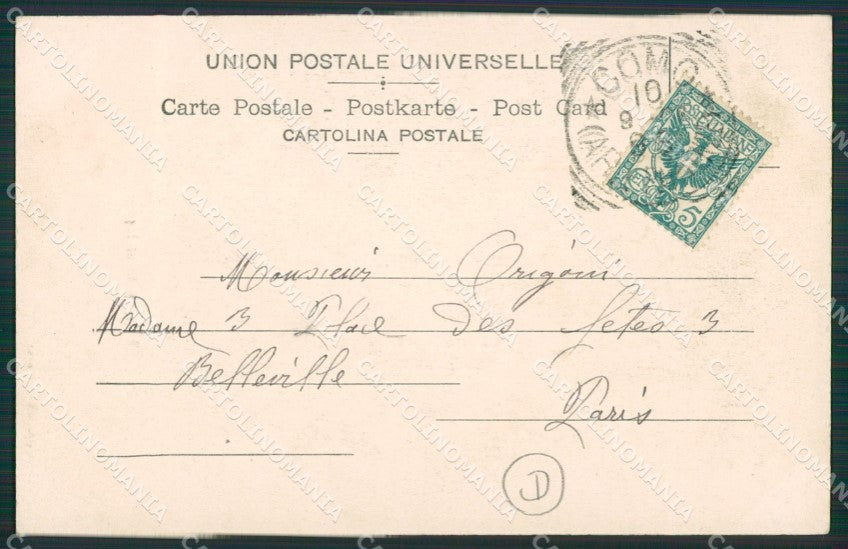 UNION POSTALE UNIVERSELLE
Carte Postale - Postkarte - Post Card
CARTOLINA POSTALE
COMO
10
9
5
Monsieur Origoni
Madame 3 Place des fetes 3
Belleville
Paris
D
CARTOLINOMANIA